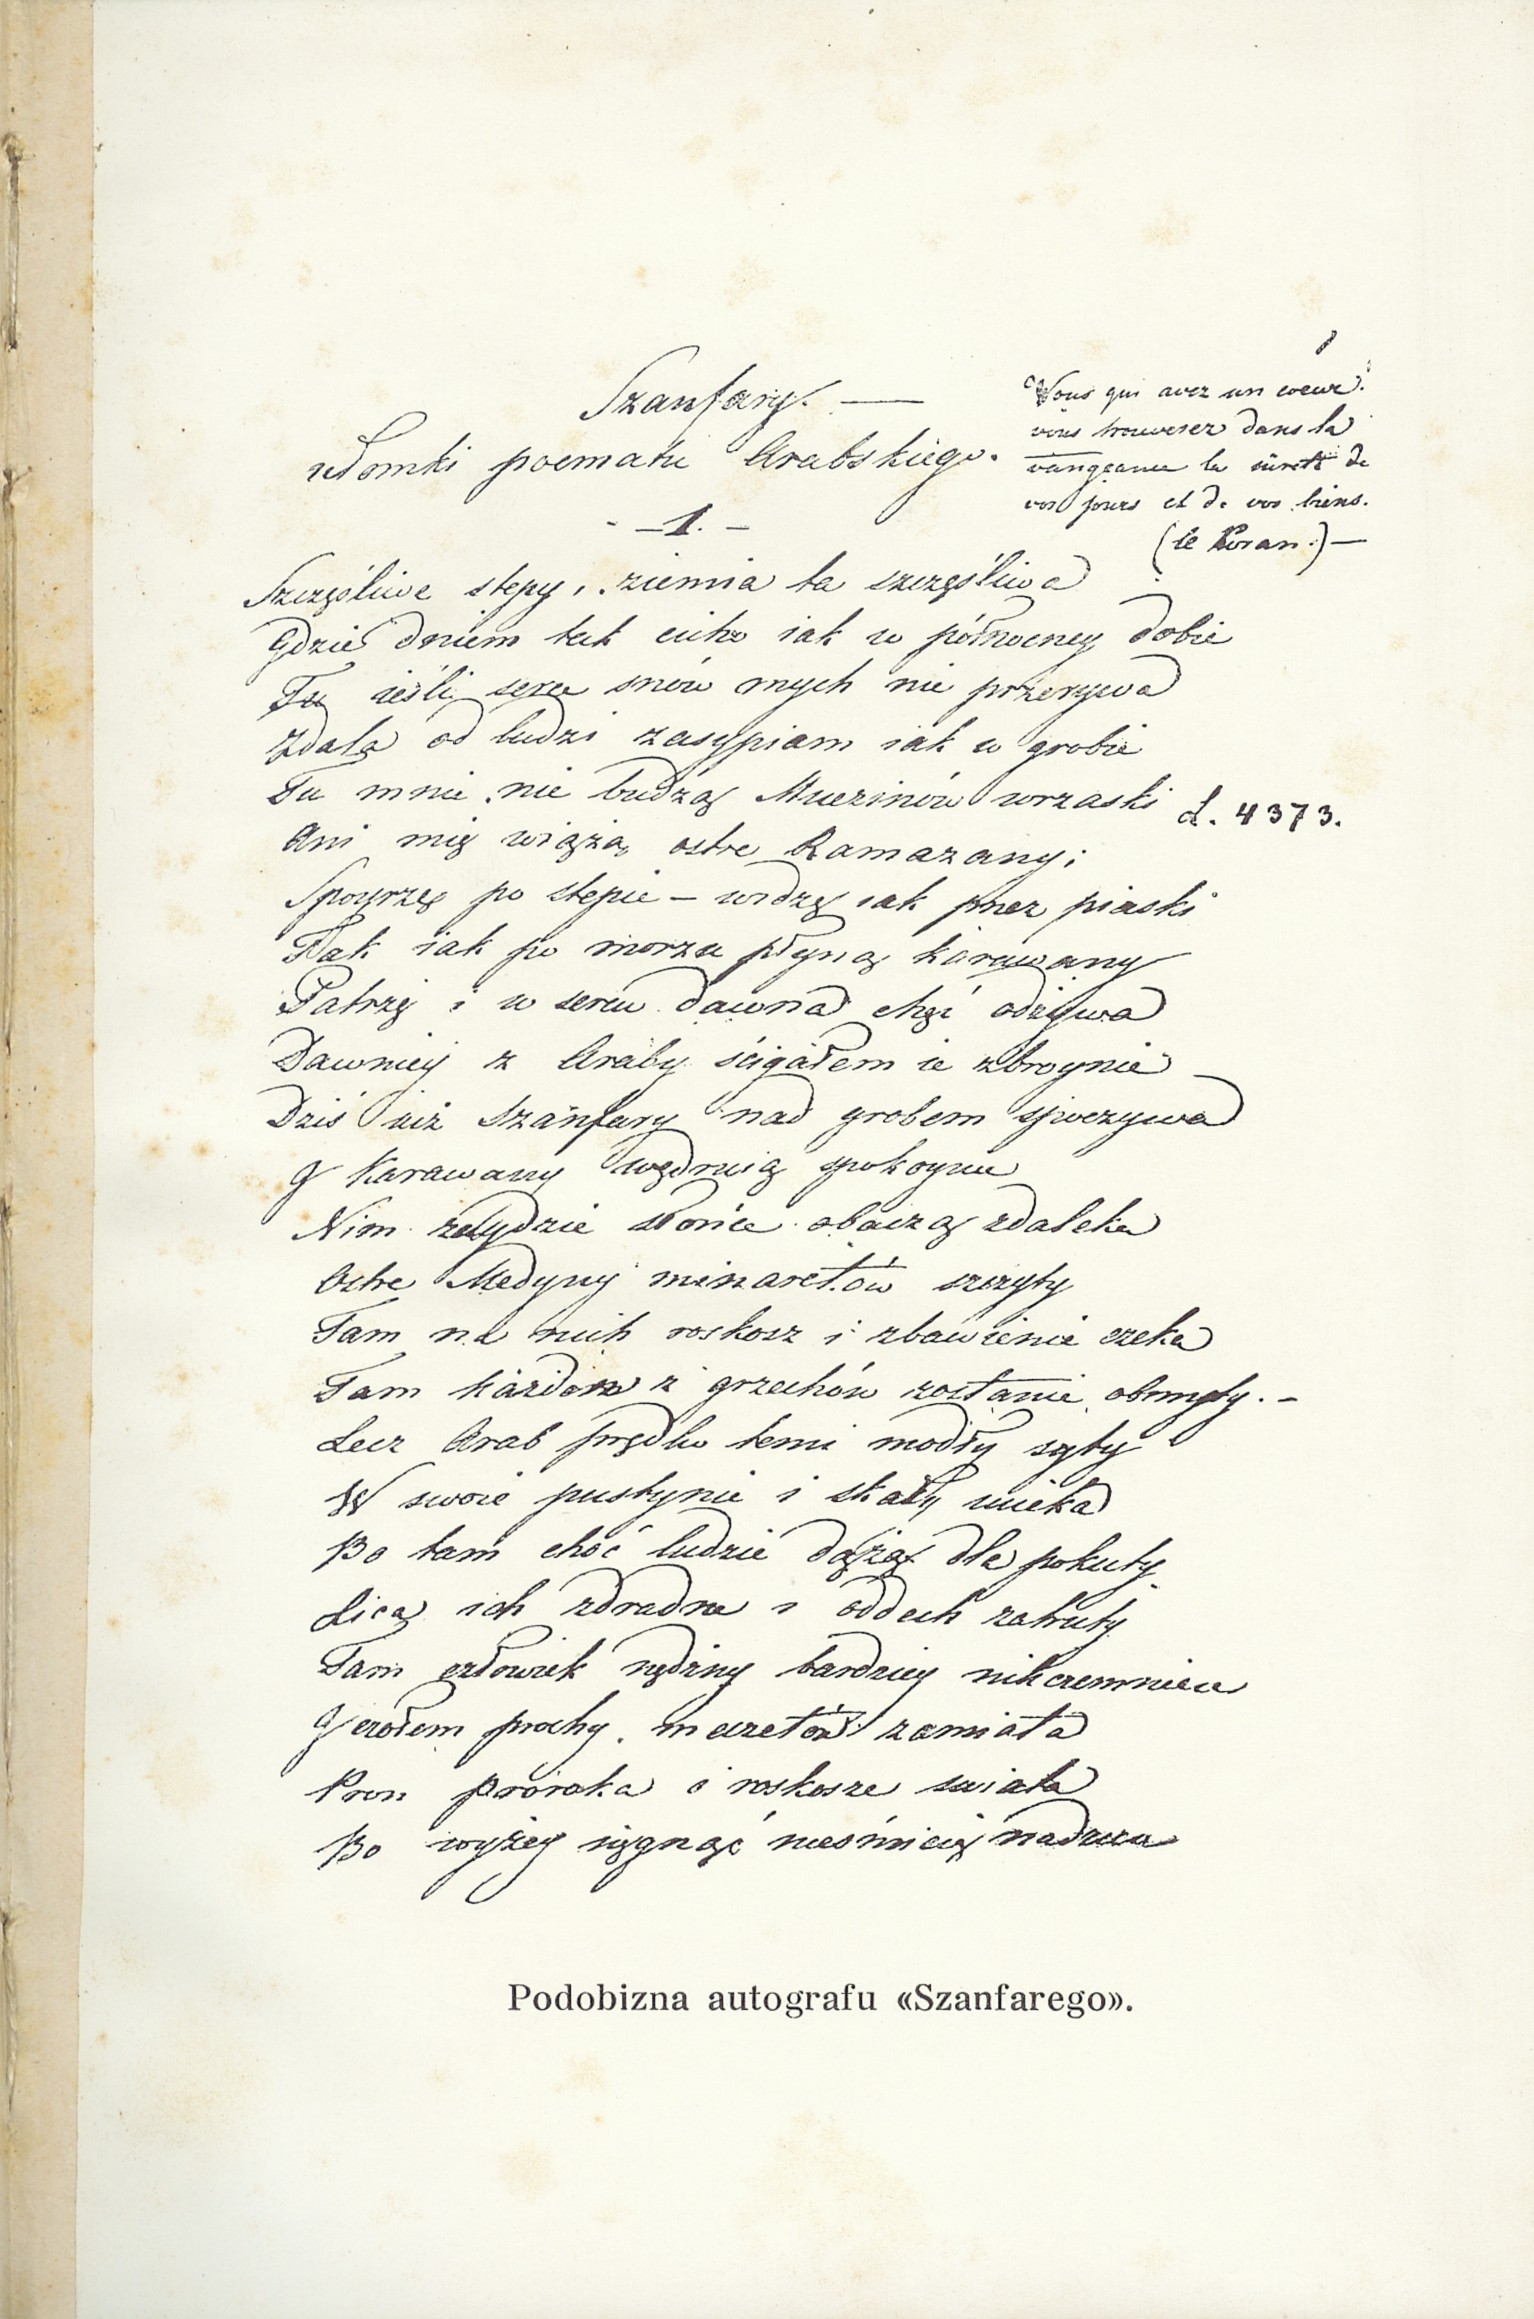 Szanfary. —
ułomki poematu Arabskiego.
Vous qui avez un coeur.
vous trouverez dans la
vangeance la sûreté de
vos jours et de vos biens.
(le Koran.) —
– 1. –
Szczęśliwe stepy, ziemia ta szczęśliwa
Gdzie dniem tak cicho iak w północney dobie
Tu ieśli serce snów mych nie przerywa
Zdala od ludzi zasypiam iak w grobie
Tu mnie nie budzą Muezinów wrzaski
L. 4373.
Ani mię wiążą ostre Ramazany;
Spoyrzę po stepie – widzę iak przez piaski
Tak iak po morzu płyną karawany
Patrzę i w sercu dawna chęć odżywa
Dawniey z Araby ścigałem ie zbroynie
Dziś iuż Szanfary nad grobem spoczywa
I Karawany wędruią spokoynie
Nim zaydzie słońce obaczą zdaleka
Ostre Medyny minaretów szczyty
Tam na nich roskosz i zbawienie czeka
Tam każden z grzechów zostanie obmyty. –
Lecz Arab prędko temi modły syty
W swoie pustynie i skały ucieka
Bo tam choć ludzie dążą dla pokuty
Lica ich zdradne i oddech zatruty
Tam człowiek nędzny bardziey nikczemnieie
I czołem prochy meczetów zamiata
Proroka i roskosze swiata
Bo wyżey sięgnąć nieśmieią nadzieie
Podobizna autografu «Szanfarego».